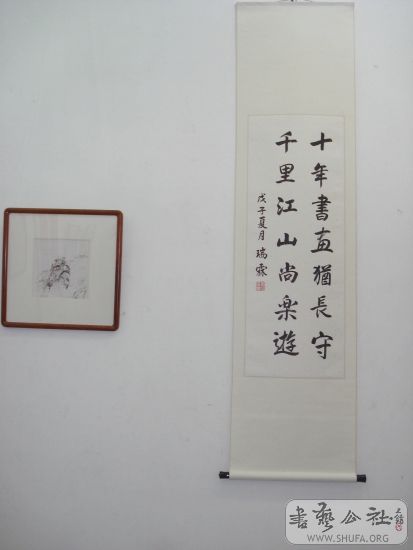 十年書畫猶長守
千里江山尚楽遊
戊子夏月 瑞霖
書藝公社
WWW.SHUFA.ORG